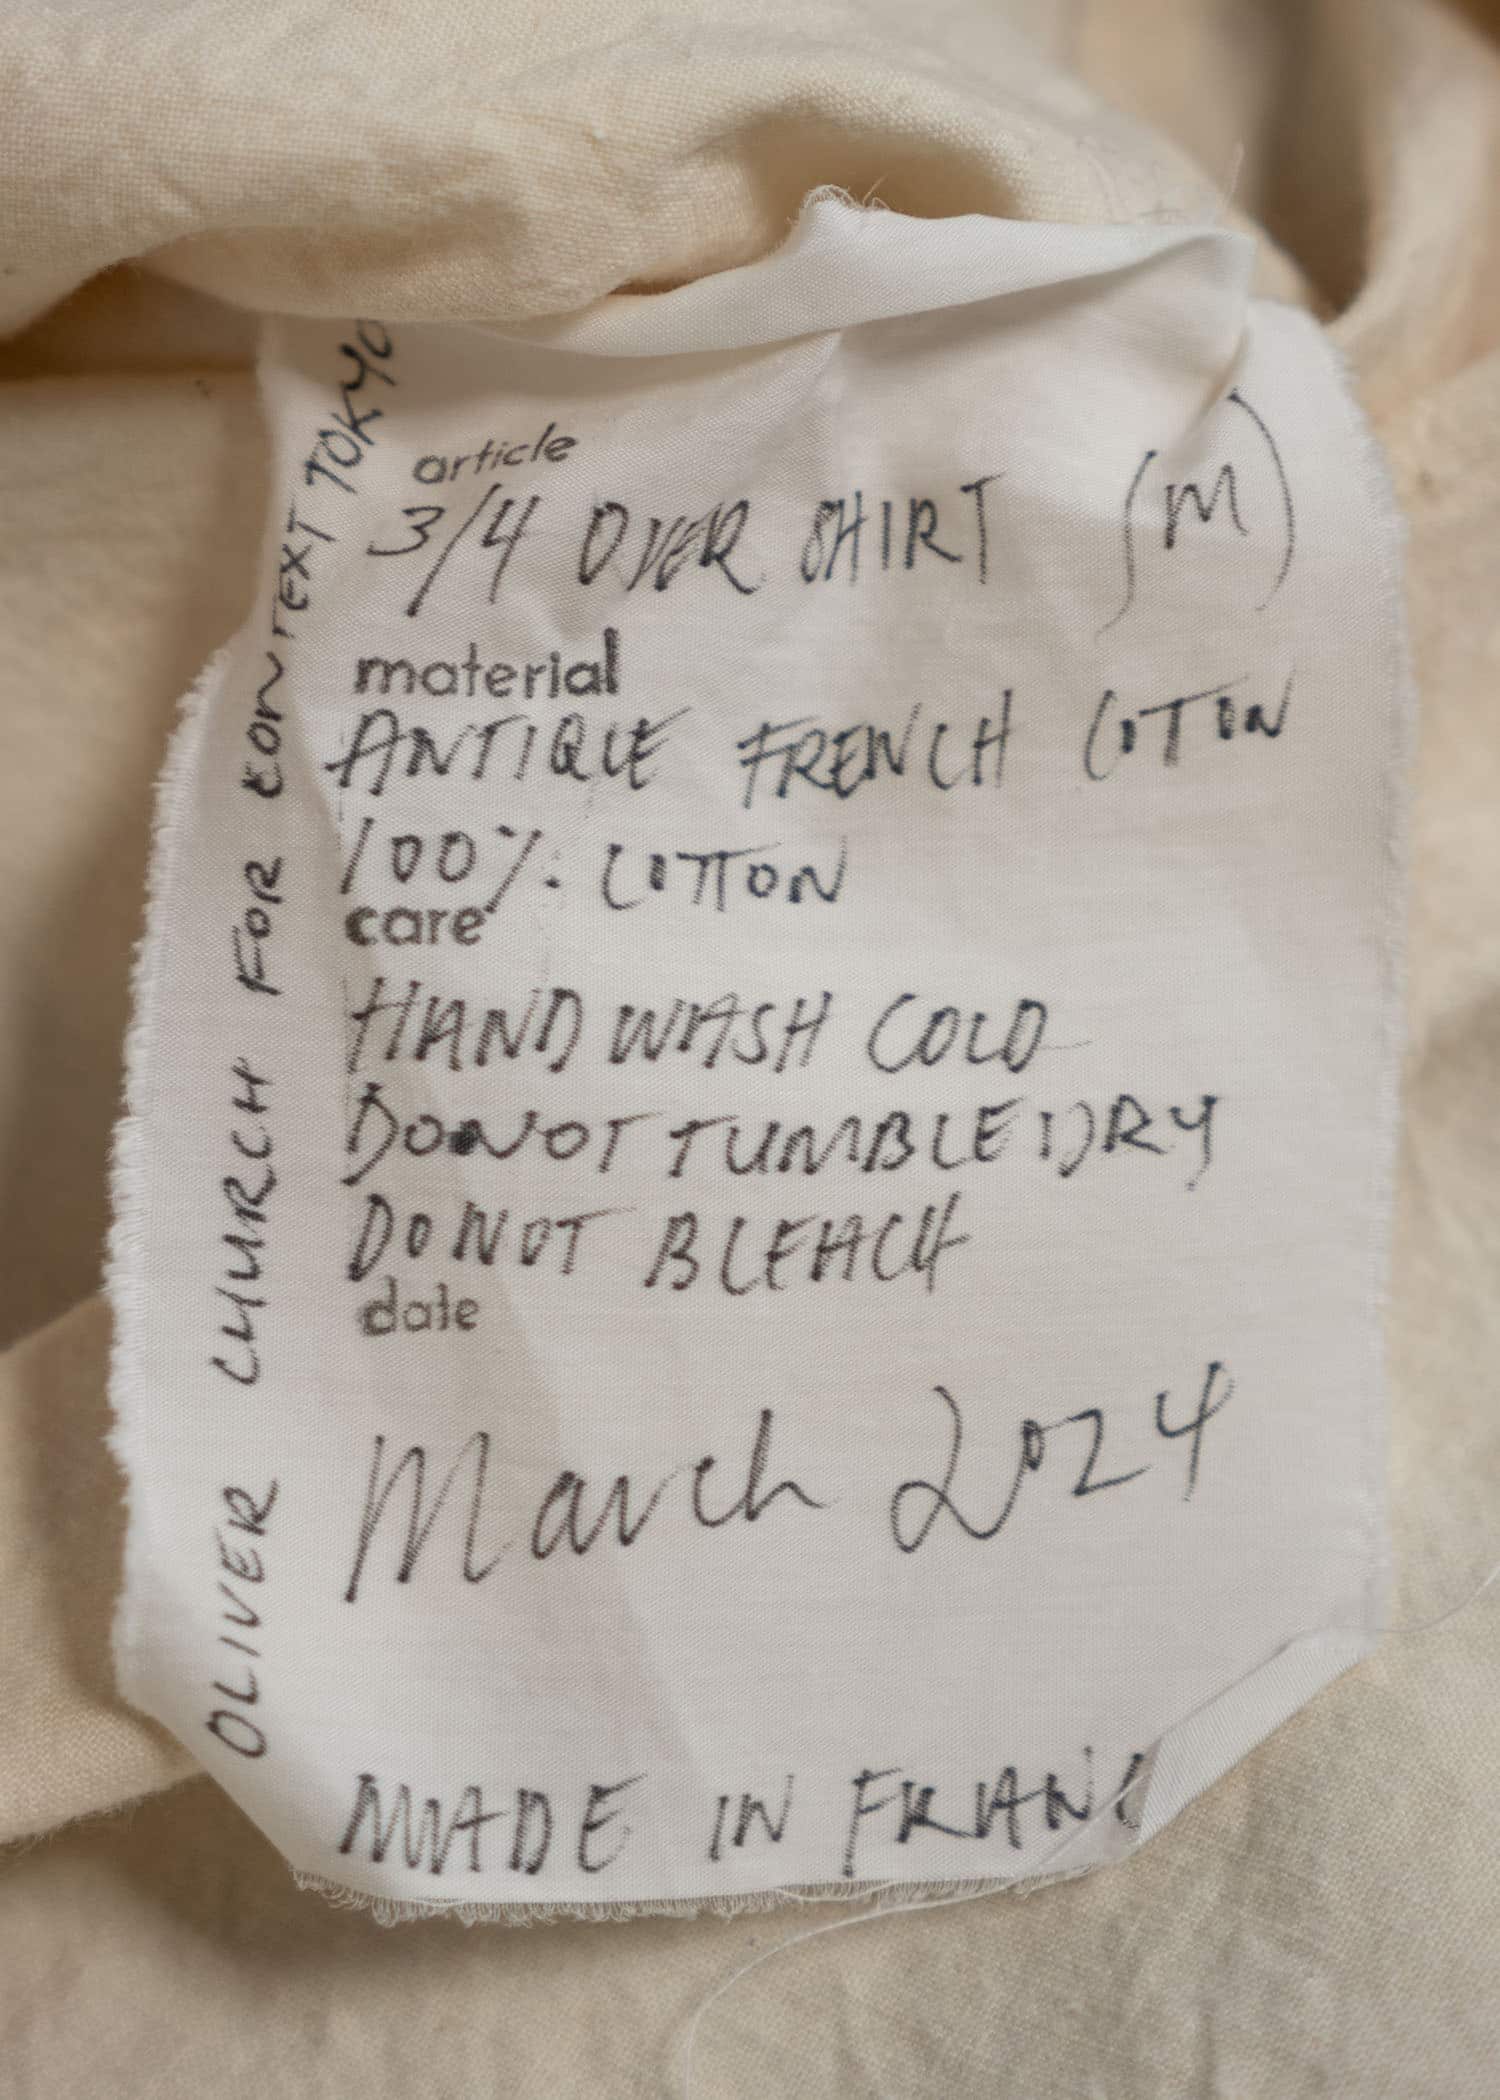 article
3/4 OVER SHIRT (M)
material
ANTIQUE FRENCH COTON
100% COTTON
care
HAND WASH COLD
DO NOT TUMBLE DRY
DO NOT BLEACH
date
March 2024
MADE IN FRANC
OLIVER CHURCH FOR CONTEXT TOKYO